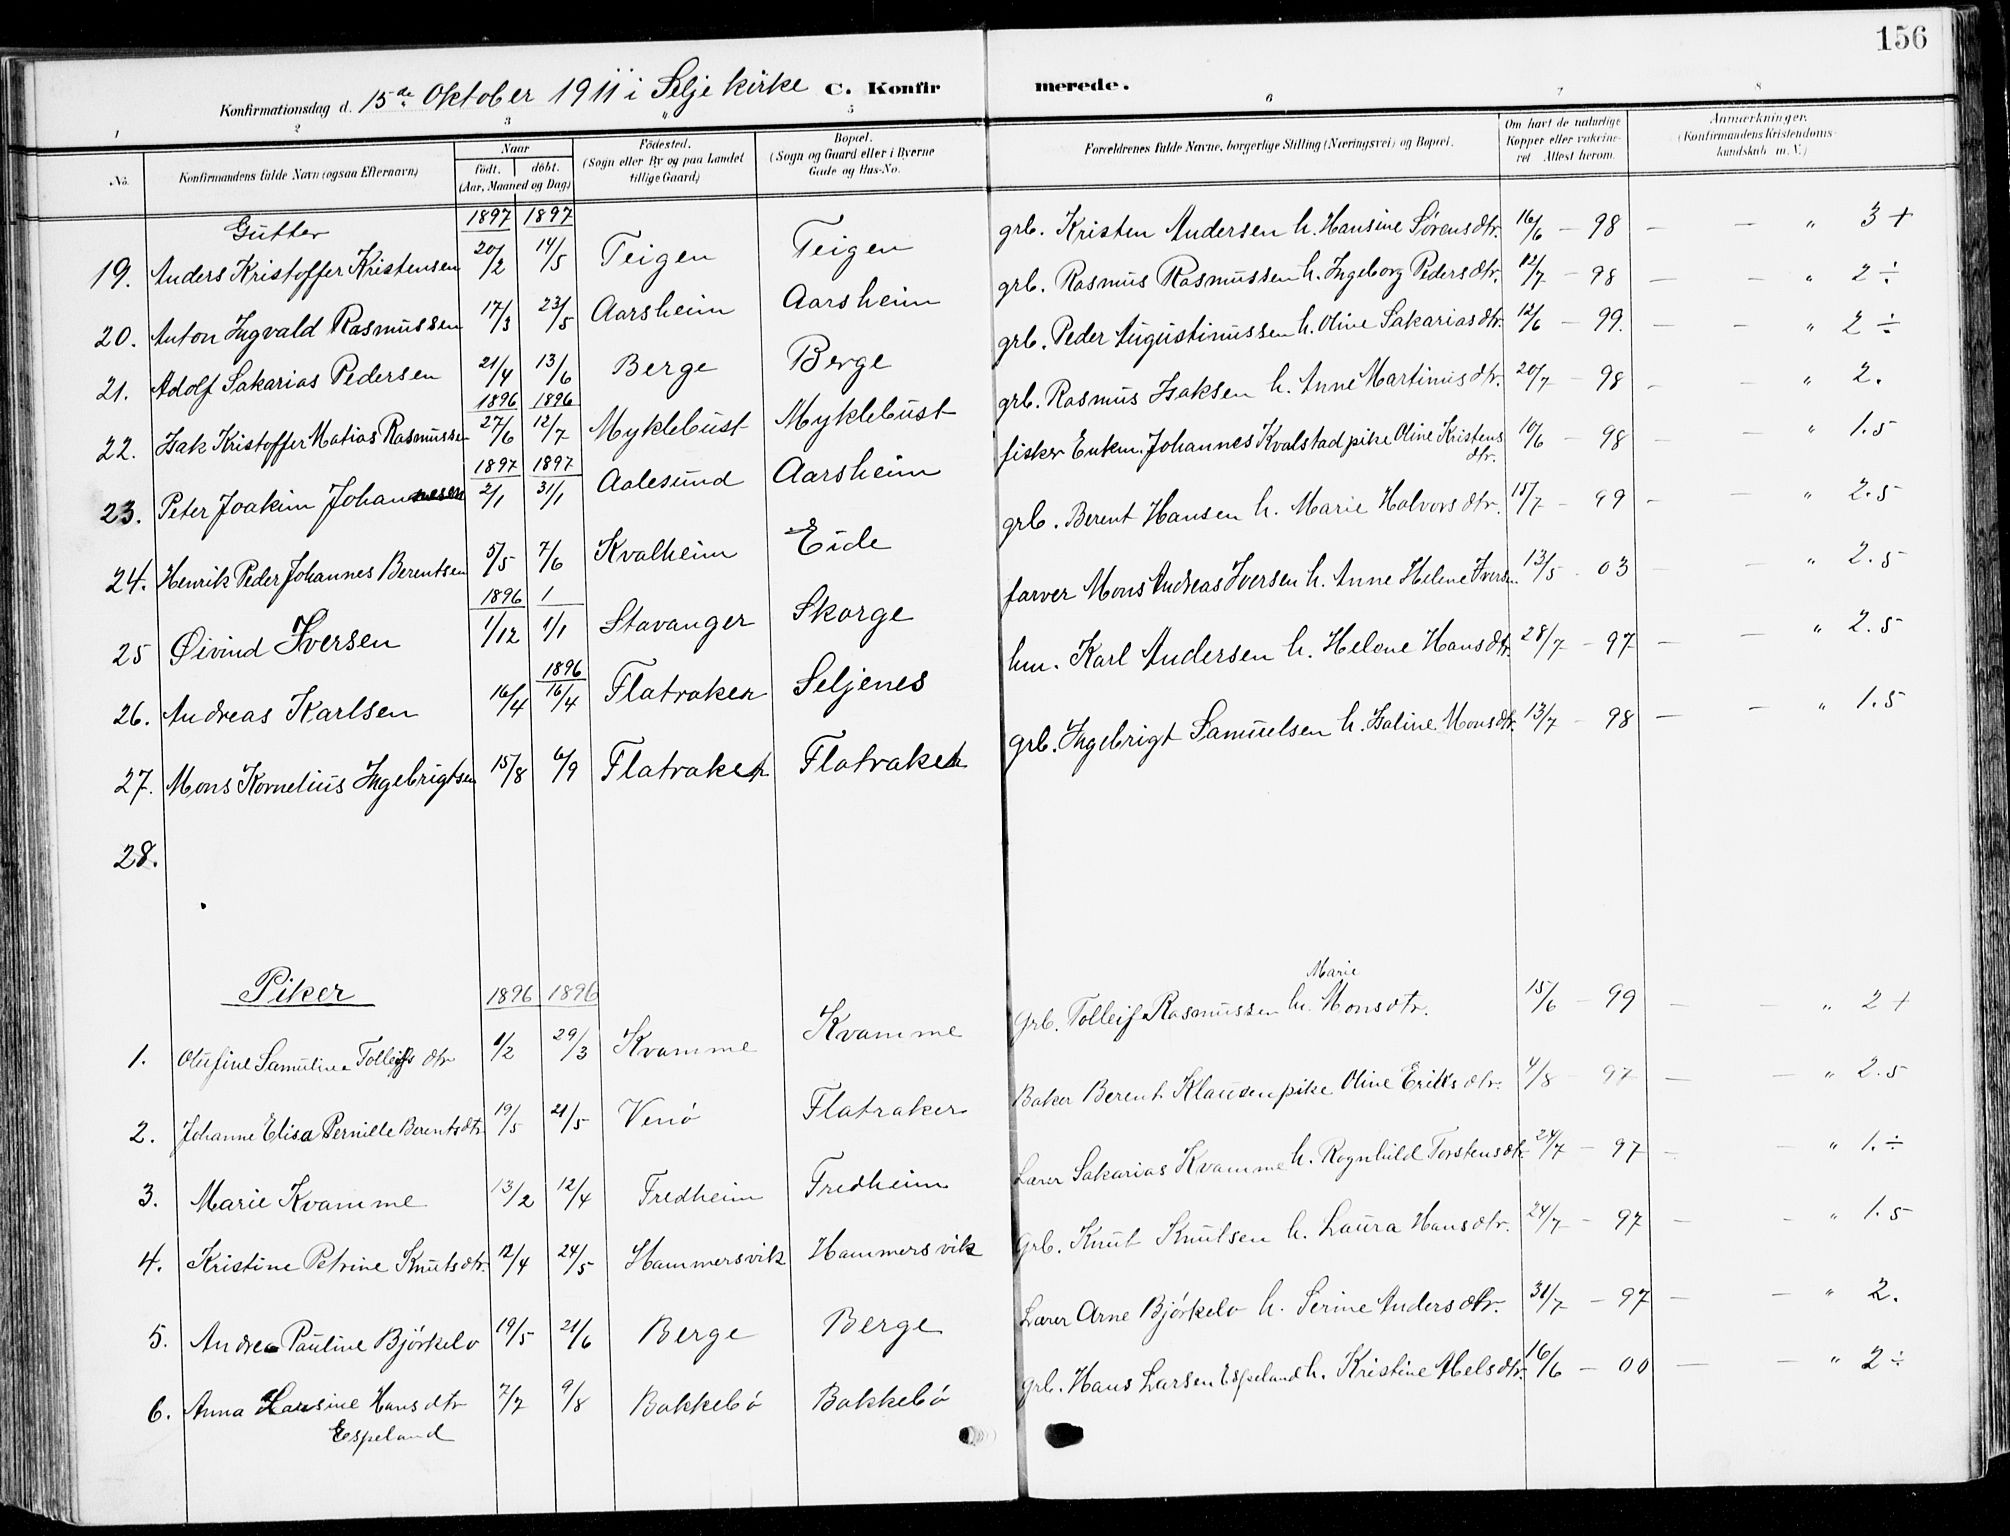 156
Konfirmationsdag d. 15de Oktober 1911 i Selje kirke C. Konfirmerede.
1 2 3 4 5 6 7 8
No. Konfirmandens fulde Navn (ogsaa Efternavn) Naar født. døbt. (Aar, Maaned og Dag) Fødested. (Sogn eller By og paa Landet tillige Gaard) Bopæl. (Sogn og Gaard eller i Byerne Gade og Hus-No. Forældrenes fulde Navne, borgerlige Stilling (Næringsvei) og Bopæl. Om havt de naturlige Kopper eller vakcineret. Attest herom. Anmærkninger. (Konfirmandens Kristendomskundskab m. V.)
Gutter 1897 1897
19. Anders Kristoffer Kristensen 20/2 14/5 Teigen Teigen grb. Kristen Andersen h. Hansine Sørensdtr. 16/6 – 98 – – " 3 +
20. Anton Ingvald Rasmussen 17/3 23/5 Aarsheim Aarsheim grb. Rasmus Rasmussen h. Ingeborg Pedersdtr. 12/7 – 98 – – " 2 ÷
21. Adolf Sakarias Pedersen 21/4 13/6 Berge Berge grb. Peder Augustinussen h. Oline Sakariasdtr. 12/6 – 99. – – " 2 ÷
1896 1896
22. Isak Kristoffer Matias Rasmussen 27/6 12/7 Myklebust Myklebust grb. Rasmus Isaksen h. Anne Martinusdtr. 20/7 – 98 – " 2.
1897 1897
23. Peter Joakim Johannesen 2/1 31/1 Aalesund Aarsheim fisker Enkm. Johannes Kvalstad pike Oline Kristensdtr. 10/6 – 98 – – " 1.5
24. Henrik Peder Johannes Berentsen 5/5 7/6 Kvalheim Eide grb. Berent Hansen h. Marie Halvorsdtr. 15/7 – 99 – – " 2.5
1896 1
25 Øivind Iversen 1/12 1/1 Stavanger Skorge farver Mons Andreas Iversen h. Anne Helene Iversn. 13/5 - 03 – – " 2.5
1896
26. Andreas Karlsen 16/4 16/4 Flatraker Seljenes hm. Karl Andersen h. Helene Hansdtr. 28/7 – 97 – – " 2.5
27. Mons Kornelius Ingebrigtsen 15/8 6/9 Flatraker Flatraker grb. Ingebrigt Samuelsen h. Isaline Monsdtr. 13/7 – 98 – – " 1.5
28.
Piker 1896 1896
1. Olufine Samuline Tolleifs dtr 1/2 29/3 Kvamme Kvamme grb. Tolleif Rasmussen h. Marie Monsdtr. 15/6 – 99 – – " 2 +
2. Johanne Elisa Pernille Berentsdtr 19/5 21/5 Venø Flatraker Baker Berent Klausen pike Oline Eriksdtr. 4/8 – 97 – – " 2.5
3. Marie Kvamme 13/2 12/4 Fredheim Fredheim Lærer Sakarias Kvamme h. Ragnhild Torstensdtr. 24/7 – 97 – – " 1. ÷
4. Kristine Petrine Knutsdtr. 12/4 24/5 Hammersvik Hammersvik Grb. Knut Knutsen h. Laura Hansdtr. 24/7 – 97 – – " 1.5
5. Andrea Pauline Bjørkelo 19/5 21/6 Berge Berge Lærer Arne Bjørkelo h. Serine Andersdtr. 31/7 – 97 – – " 2.
6. Anna Lausine Hansdtr 7/7 9/8 Bakkebø Bakkebø grb. Hans Larsen Espeland h. Kristine Abelsdtr. 16/6 – 00 – – " 2 ÷
Espeland